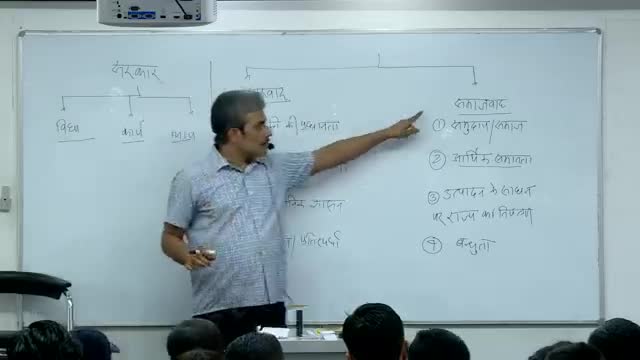 सरकार
विधा कार्य न्याय
वाद
की प्रधानता
/ प्रतिस्पर्धा
समाजवाद
① समुदाय/समाज
② आर्थिक समानता
③ उत्पादन के साधन
पर राज्य का नियंत्रण
④ बन्धुता